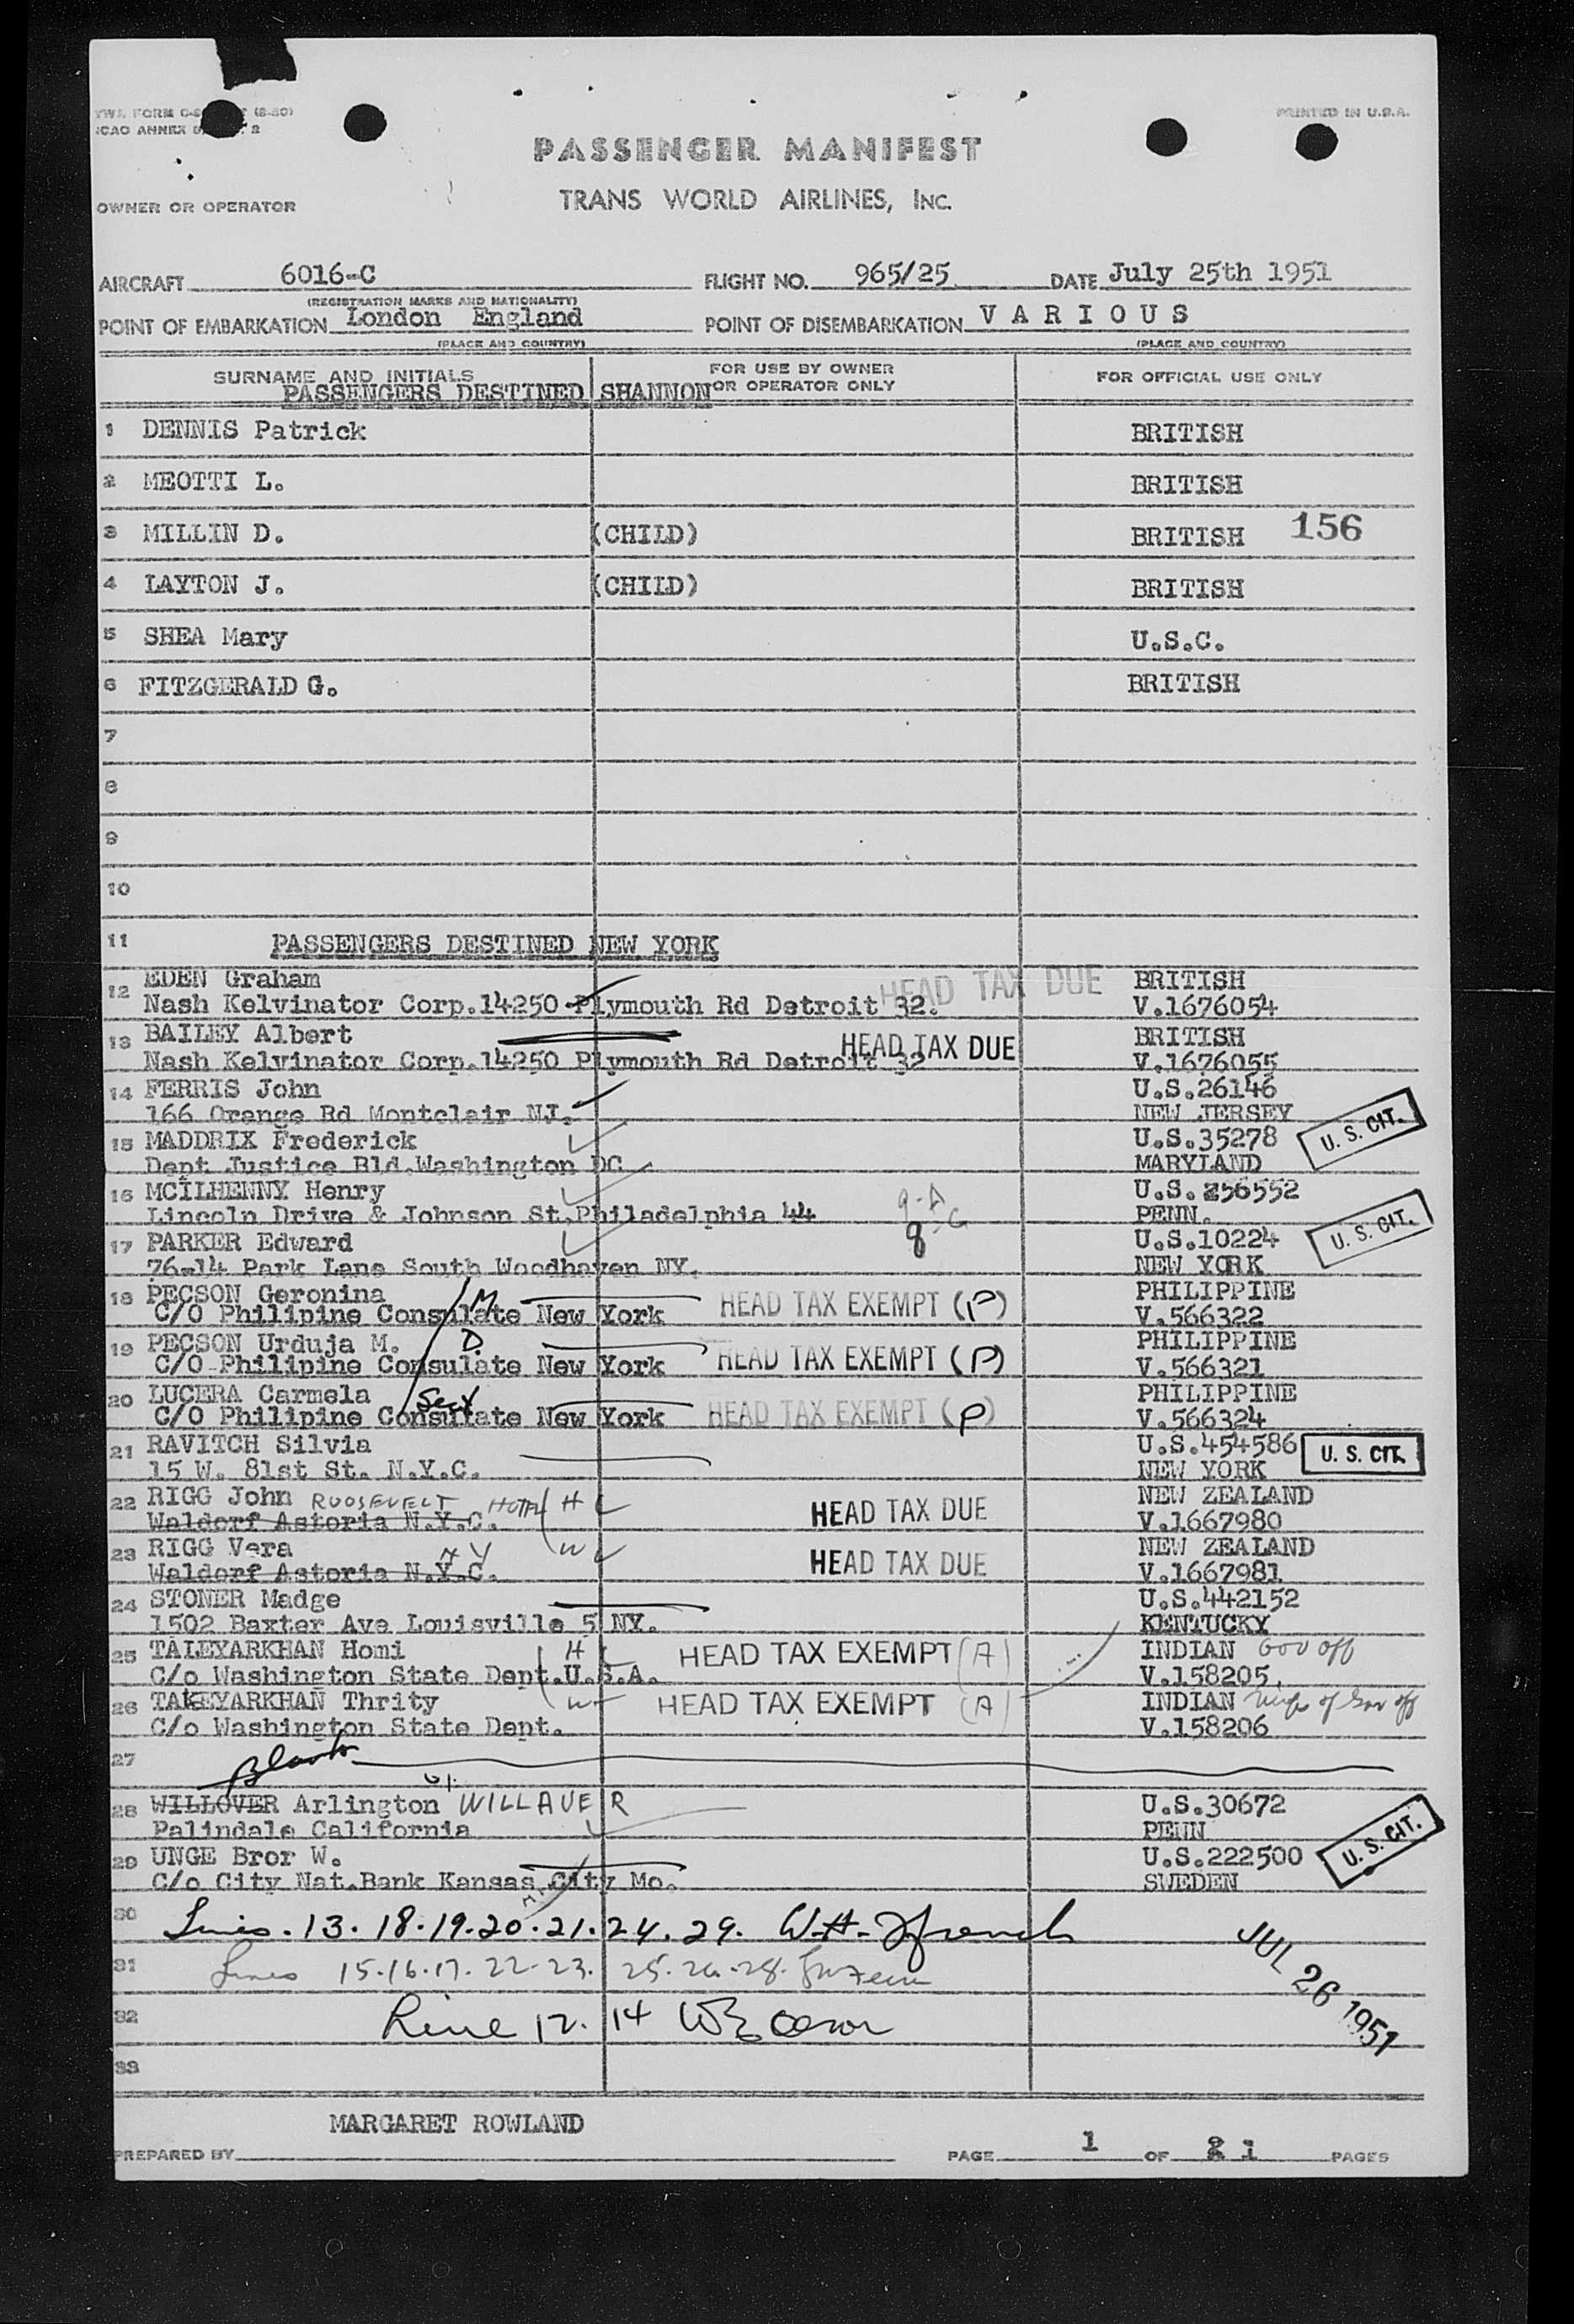 TWA FORM (8-50)
PRINTED IN U.S.A.
ICAO ANNEX
PASSENGER MANIFEST
OWNER OR OPERATOR
TRANS WORLD AIRLINES, INC.
AIRCRAFT 6016-C FLIGHT NO. 965/25 DATE July 25th 1951
(REGISTRATION MARKS AND NATIONALITY)
POINT OF EMBARKATION London England POINT OF DISEMBARKATION V A R I O U S
(PLACE AND COUNTRY) (PLACE AND COUNTRY)
SURNAME AND INITIALS FOR USE BY OWNER OR OPERATOR ONLY FOR OFFICIAL USE ONLY
PASSENGERS DESTINED SHANNON
1 DENNIS Patrick BRITISH
2 MEOTTI L. BRITISH
3 MILLIN D. (CHILD) BRITISH 156
4 LAYTON J. (CHILD) BRITISH
5 SHEA Mary U.S.C.
6 FITZGERALD G. BRITISH
7
8
9
10
11 PASSENGERS DESTINED NEW YORK
12 EDEN Graham HEAD TAX DUE BRITISH
Nash Kelvinator Corp.14250 Plymouth Rd Detroit 32. V.1676054
13 BAILEY Albert HEAD TAX DUE BRITISH
Nash Kelvinator Corp.14250 Plymouth Rd Detroit 32 V.1676055
14 FERRIS John U.S.26146
166 Orange Rd Montclair NJ. NEW JERSEY
15 MADDRIX Frederick U.S.35278 U. S. CIT.
Dept Justice Bld.Washington DC MARYLAND
16 MCILHENNY Henry 9-A U.S.256552
Lincoln Drive & Johnson St.Philadelphia 44 8-G PENN.
17 PARKER Edward U.S.10224 U. S. CIT.
76-14 Park Lane South Woodhaven NY. NEW YORK
18 PECSON Geronina M HEAD TAX EXEMPT (P) PHILIPPINE
C/O Philipine Consulate New York V.566322
19 PECSON Urduja M. D. HEAD TAX EXEMPT (P) PHILIPPINE
C/O Philipine Consulate New York V.566321
20 LUCERA Carmela Sect HEAD TAX EXEMPT (P) PHILIPPINE
C/O Philipine Consulate New York V.566324
21 RAVITCH Silvia U.S.454586 U. S. CIT.
15 W. 81st St. N.Y.C. NEW YORK
22 RIGG John ROOSEVELT HOTEL H HEAD TAX DUE NEW ZEALAND
Waldorf Astoria N.Y.C. V.1667980
23 RIGG Vera N Y W HEAD TAX DUE NEW ZEALAND
Waldorf Astoria N.Y.C. V.1667981
24 STONER Madge U.S.442152
1502 Baxter Ave Louisville 5 NY. KENTUCKY
25 TALEYARKHAN Homi H HEAD TAX EXEMPT (A) INDIAN Gov off
C/o Washington State Dept.U.S.A. V.158205.
26 TALEYARKHAN Thrity W HEAD TAX EXEMPT (A) INDIAN Wife of Gov off
C/o Washington State Dept. V.158206
27 Blank
28 WILLOVER Arlington WILLAUER U.S.30672
Palindale California PENN U. S. CIT.
29 UNGE Bror W. U.S.222500
C/o City Nat.Bank Kansas City Mo. SWEDEN
30 Lines. 13. 18. 19. 20. 21. 24. 29. W.H. French
31 Lines 15. 16. 17. 22. 23. 25. 26. 28.
JUL 26 1951
32 Line 12. 14
33
MARGARET ROWLAND
PREPARED BY PAGE 1 OF 21 PAGES